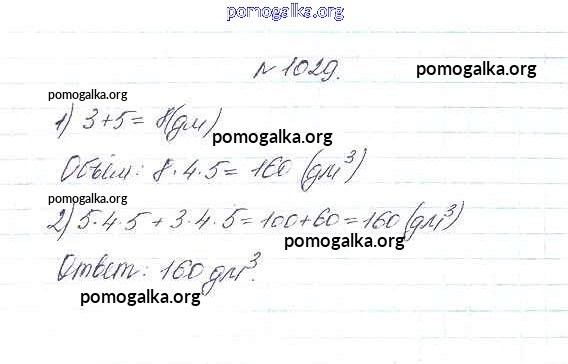 pomogalka.org
№1029.
pomogalka.org
pomogalka.org
1) 3+5=8(дм)
pomogalka.org
Объём: 8·4·5=160 (дм³)
pomogalka.org
2) 5·4·5+3·4·5=100+60=160(дм³)
pomogalka.org
Ответ: 160 дм³.
pomogalka.org